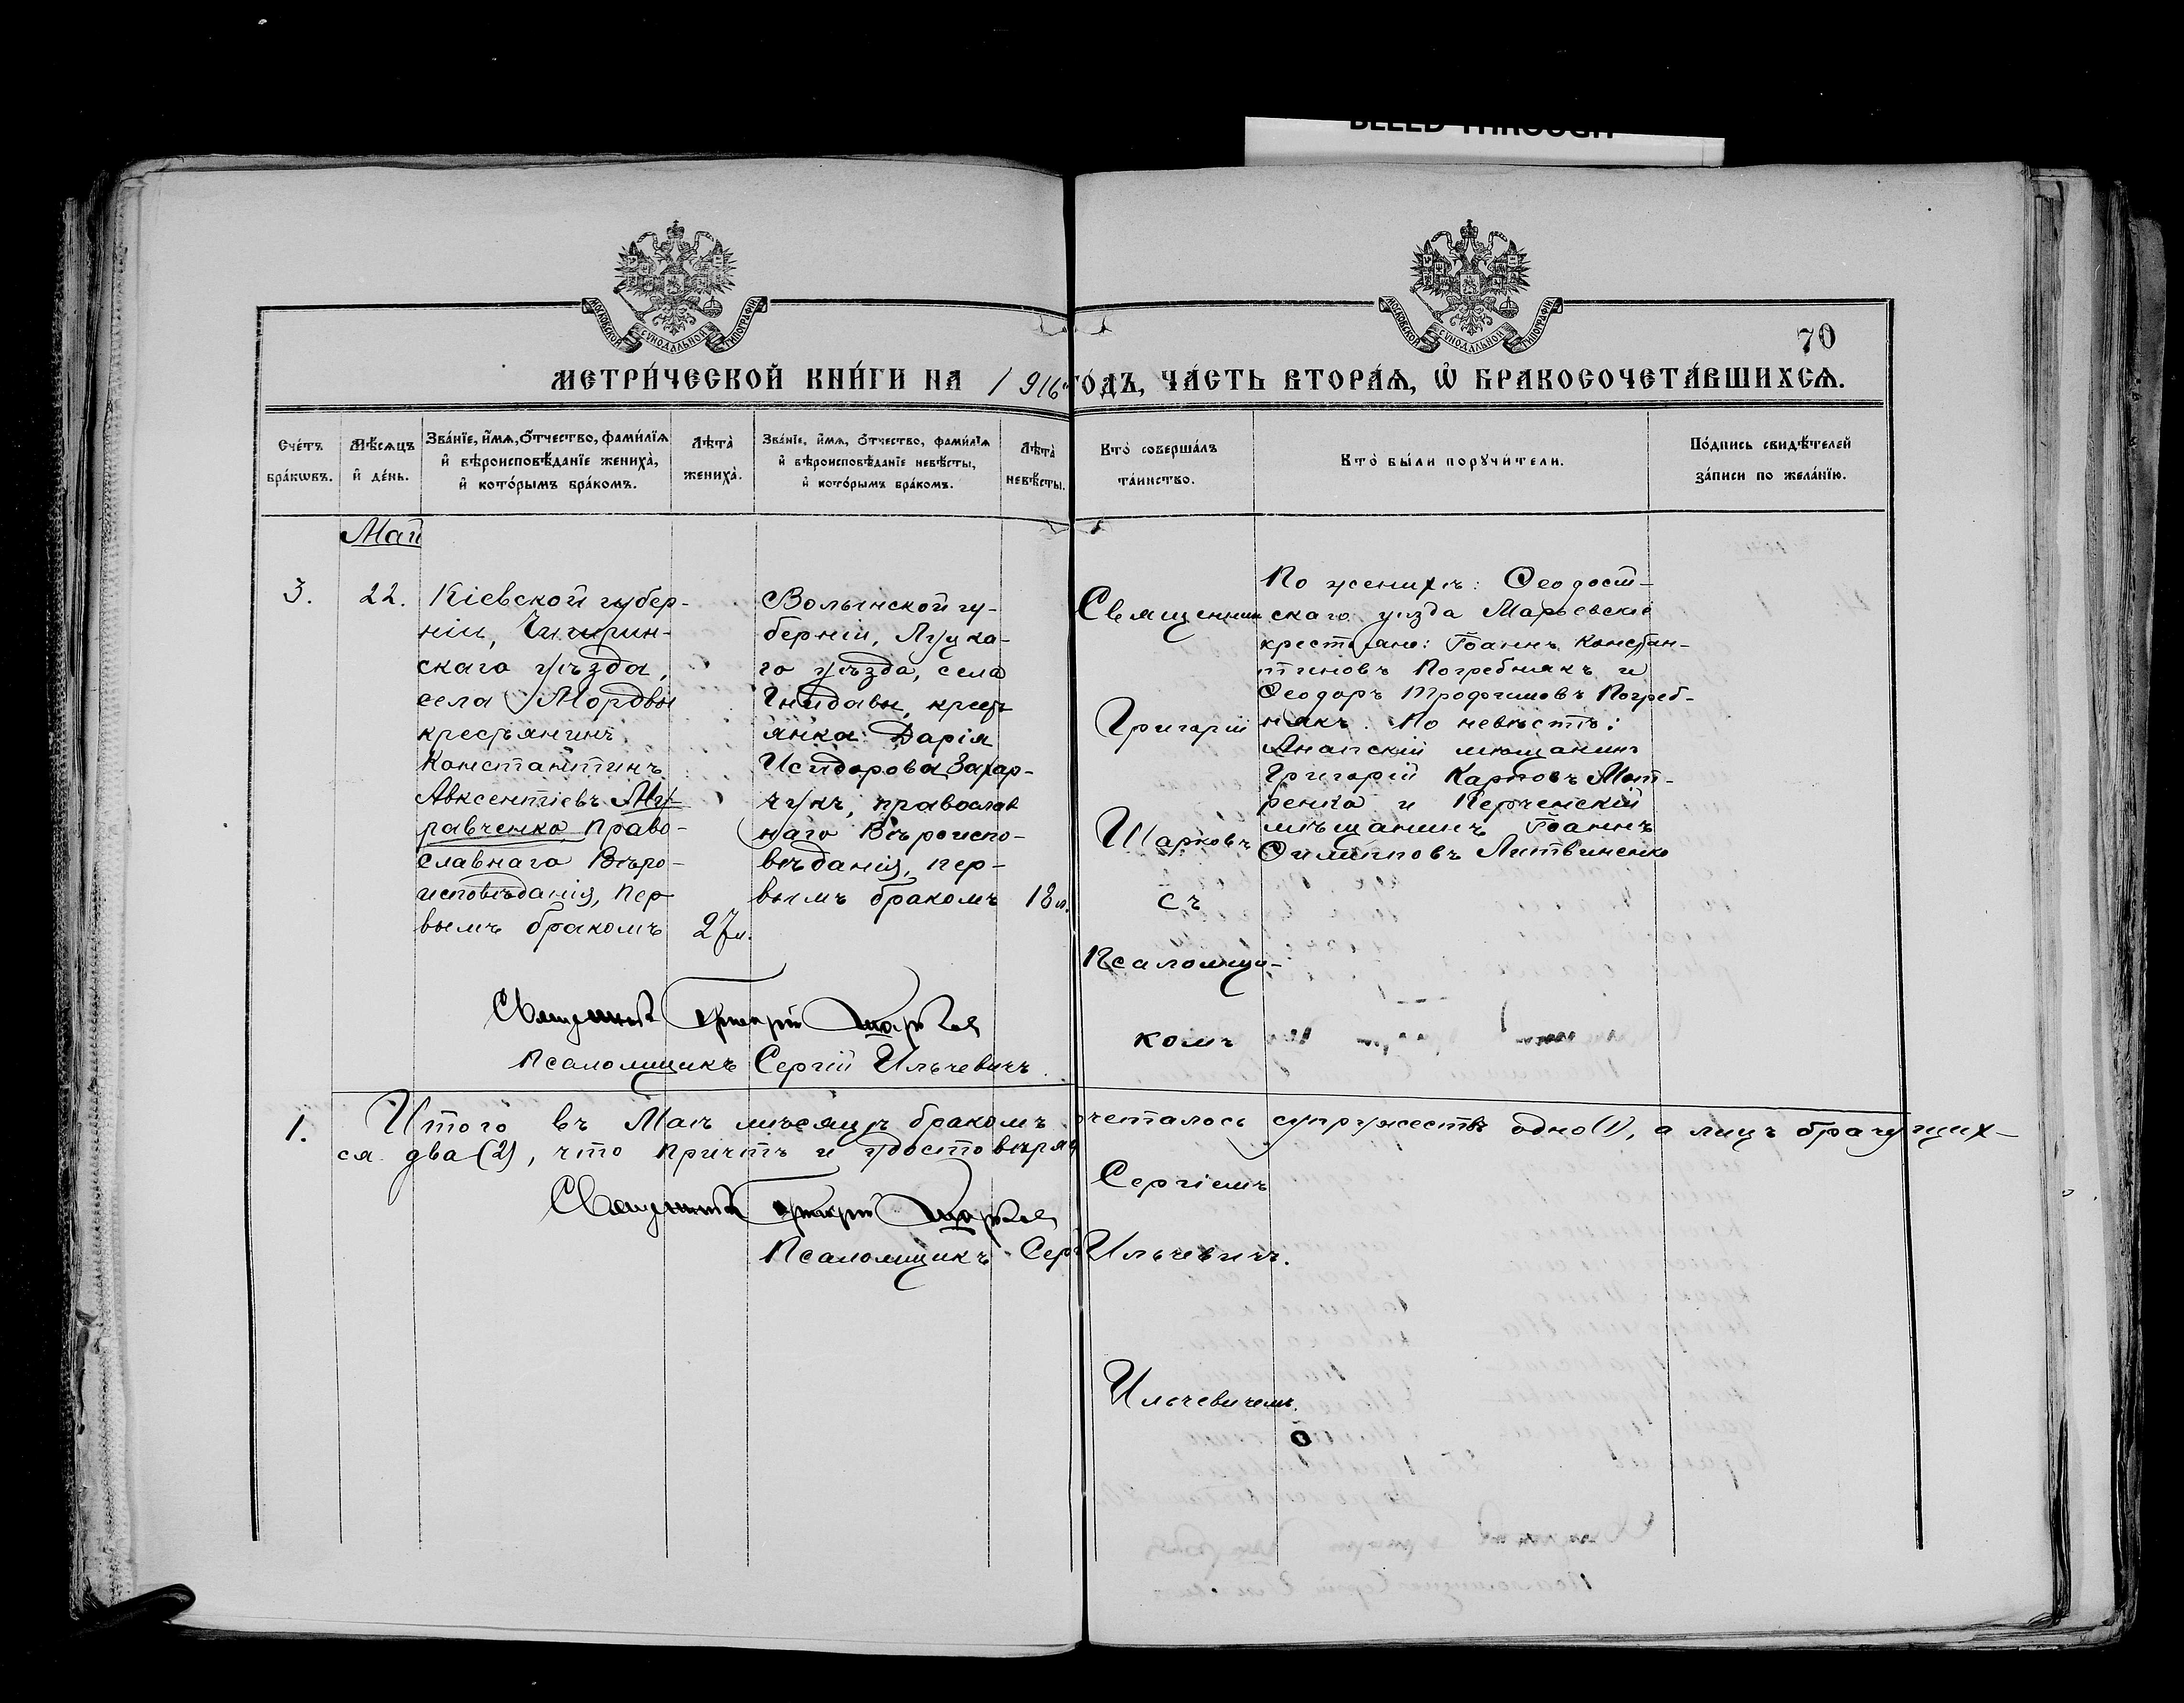 BLEED THROUGH
МОСКОВСКОЙ СѴНОДАЛЬНОЙ ТИПОГРАФІИ
МОСКОВСКОЙ СѴНОДАЛЬНОЙ ТИПОГРАФІИ
70
МЕТРИ́ЧЕСКОЙ КНИ́ГИ НА 1916 ГО́ДЪ, ЧА́СТЬ ВТОРА́Ѧ, Ѡ҆ БРАКОСОЧЕТА́ВШИХСѦ.
Сче́тъ
бра́кѡвъ.
Мѣ́сѧцъ
и҆ де́нь.
Зва́нїе, и҆́мѧ, ѻ҆́тчество, фами́лїѧ
и҆ вѣроисповѣ́данїе жениха̀,
и҆ кото́рымъ бра́комъ.
Лѣта̀
жениха̀.
Зва́нїе, и҆́мѧ, ѻ҆́тчество, фами́лїѧ
и҆ вѣроисповѣ́данїе невѣ́сты,
и҆ кото́рымъ бра́комъ.
Лѣта̀
невѣ́сты.
Кто̀ соверша́лъ
та́инство.
Кто̀ бы́ли порꙋчи́тели.
По́дпись свидѣ́телей
за́писи по жела́нїю.
Май
3.
22.
Кіевской губер-
ніи, Чигирин-
скаго уѣзда,
села Мордвы
крестьянинъ
Константинъ
Авксентіевъ Му-
равченко, право-
славнаго вѣро-
исповѣданія, пер
вымъ бракомъ
27 л.
Волынской гу-
берніи, Луцка-
го уѣзда, села
Гнидавы, крест
янка: Дарія
Исидорова Захар-
чукъ, православ
наго вѣроиспо-
вѣданія, пер-
вымъ бракомъ
18 л.
Священник
Григорій
Шарковъ
съ
Псаломщи-
комъ
Сергіемъ
Ильчевичемъ.
По женихѣ: Ѳеодост-
скаго уѣзда Марьевскіе
крестьяне: Іоаннъ Констан-
тиновъ Погребнякъ и
Ѳеодоръ Трофимовъ Погреб-
някъ. По невѣстѣ:
Анапскій мѣщанинъ
Григорій Карповъ Мат-
ренко и Керченскій
мѣщанинъ Іоаннъ
Филипповъ Литвиненко
Священникъ Григорій Шарковъ
Псаломщикъ Сергій Ильчевичъ.
1.
Итого въ Маѣ мѣсяцѣ бракомъ сочеталось супружествъ одно (1), а лицъ брачущих-
ся два (2), что причтъ и удостовѣряе
Священникъ Григорій Шарковъ
Псаломщикъ Сергій Ильчевичъ.